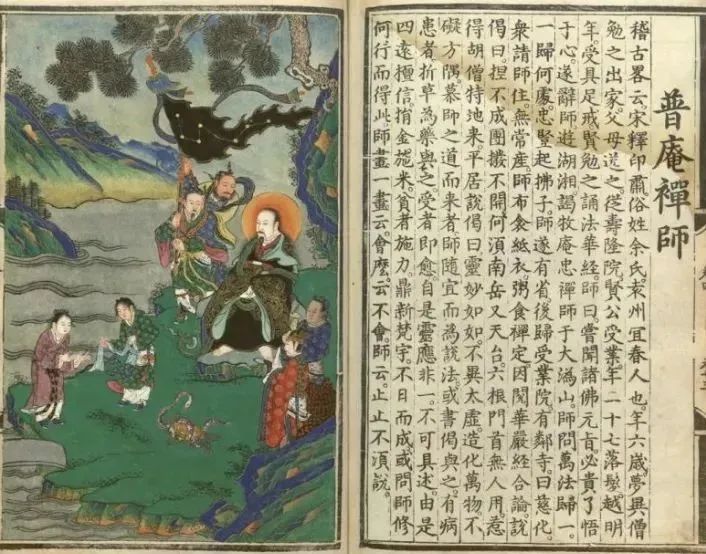 普庵禪師
稽古畧云。宋釋印肅。俗姓余氏。袁州宜春人也。年六歲。夢異僧
勉之出家。父母送之。從壽隆院賢公受業。年二十七落髮。越明
年受具足戒。賢勉之誦法華經。師曰。嘗聞諸佛元旨。必貴了悟
于心。遂辭師遊湖湘。謁牧庵忠禪師于大溈山。師問萬法歸一。
一歸何處。忠豎起拂子。師遂有省。後歸受業院。有鄰寺。曰慈化。
衆請師住。無常産。師布衾紙衣。粥食禪定。因閱華嚴經合論。說
偈曰。捏不成團撥不開。何須南岳又天台。六根門首無人用。惹
得胡僧特地来。平居說偈曰。靈妙如如。不異太虛。造化萬物。不
礙方隅。慕師之道而来者。師隨宜而為說法。或書偈與之。有病
患者。折草為藥與之。受者即愈。自是靈應非一。不可具述。由是
四遠檀信。捐金施米。貧者施力。鼎新梵宇。不日而成。或問師修
何行而得此。師畫一畫云。會麽。云不會。師云。止止不須說。